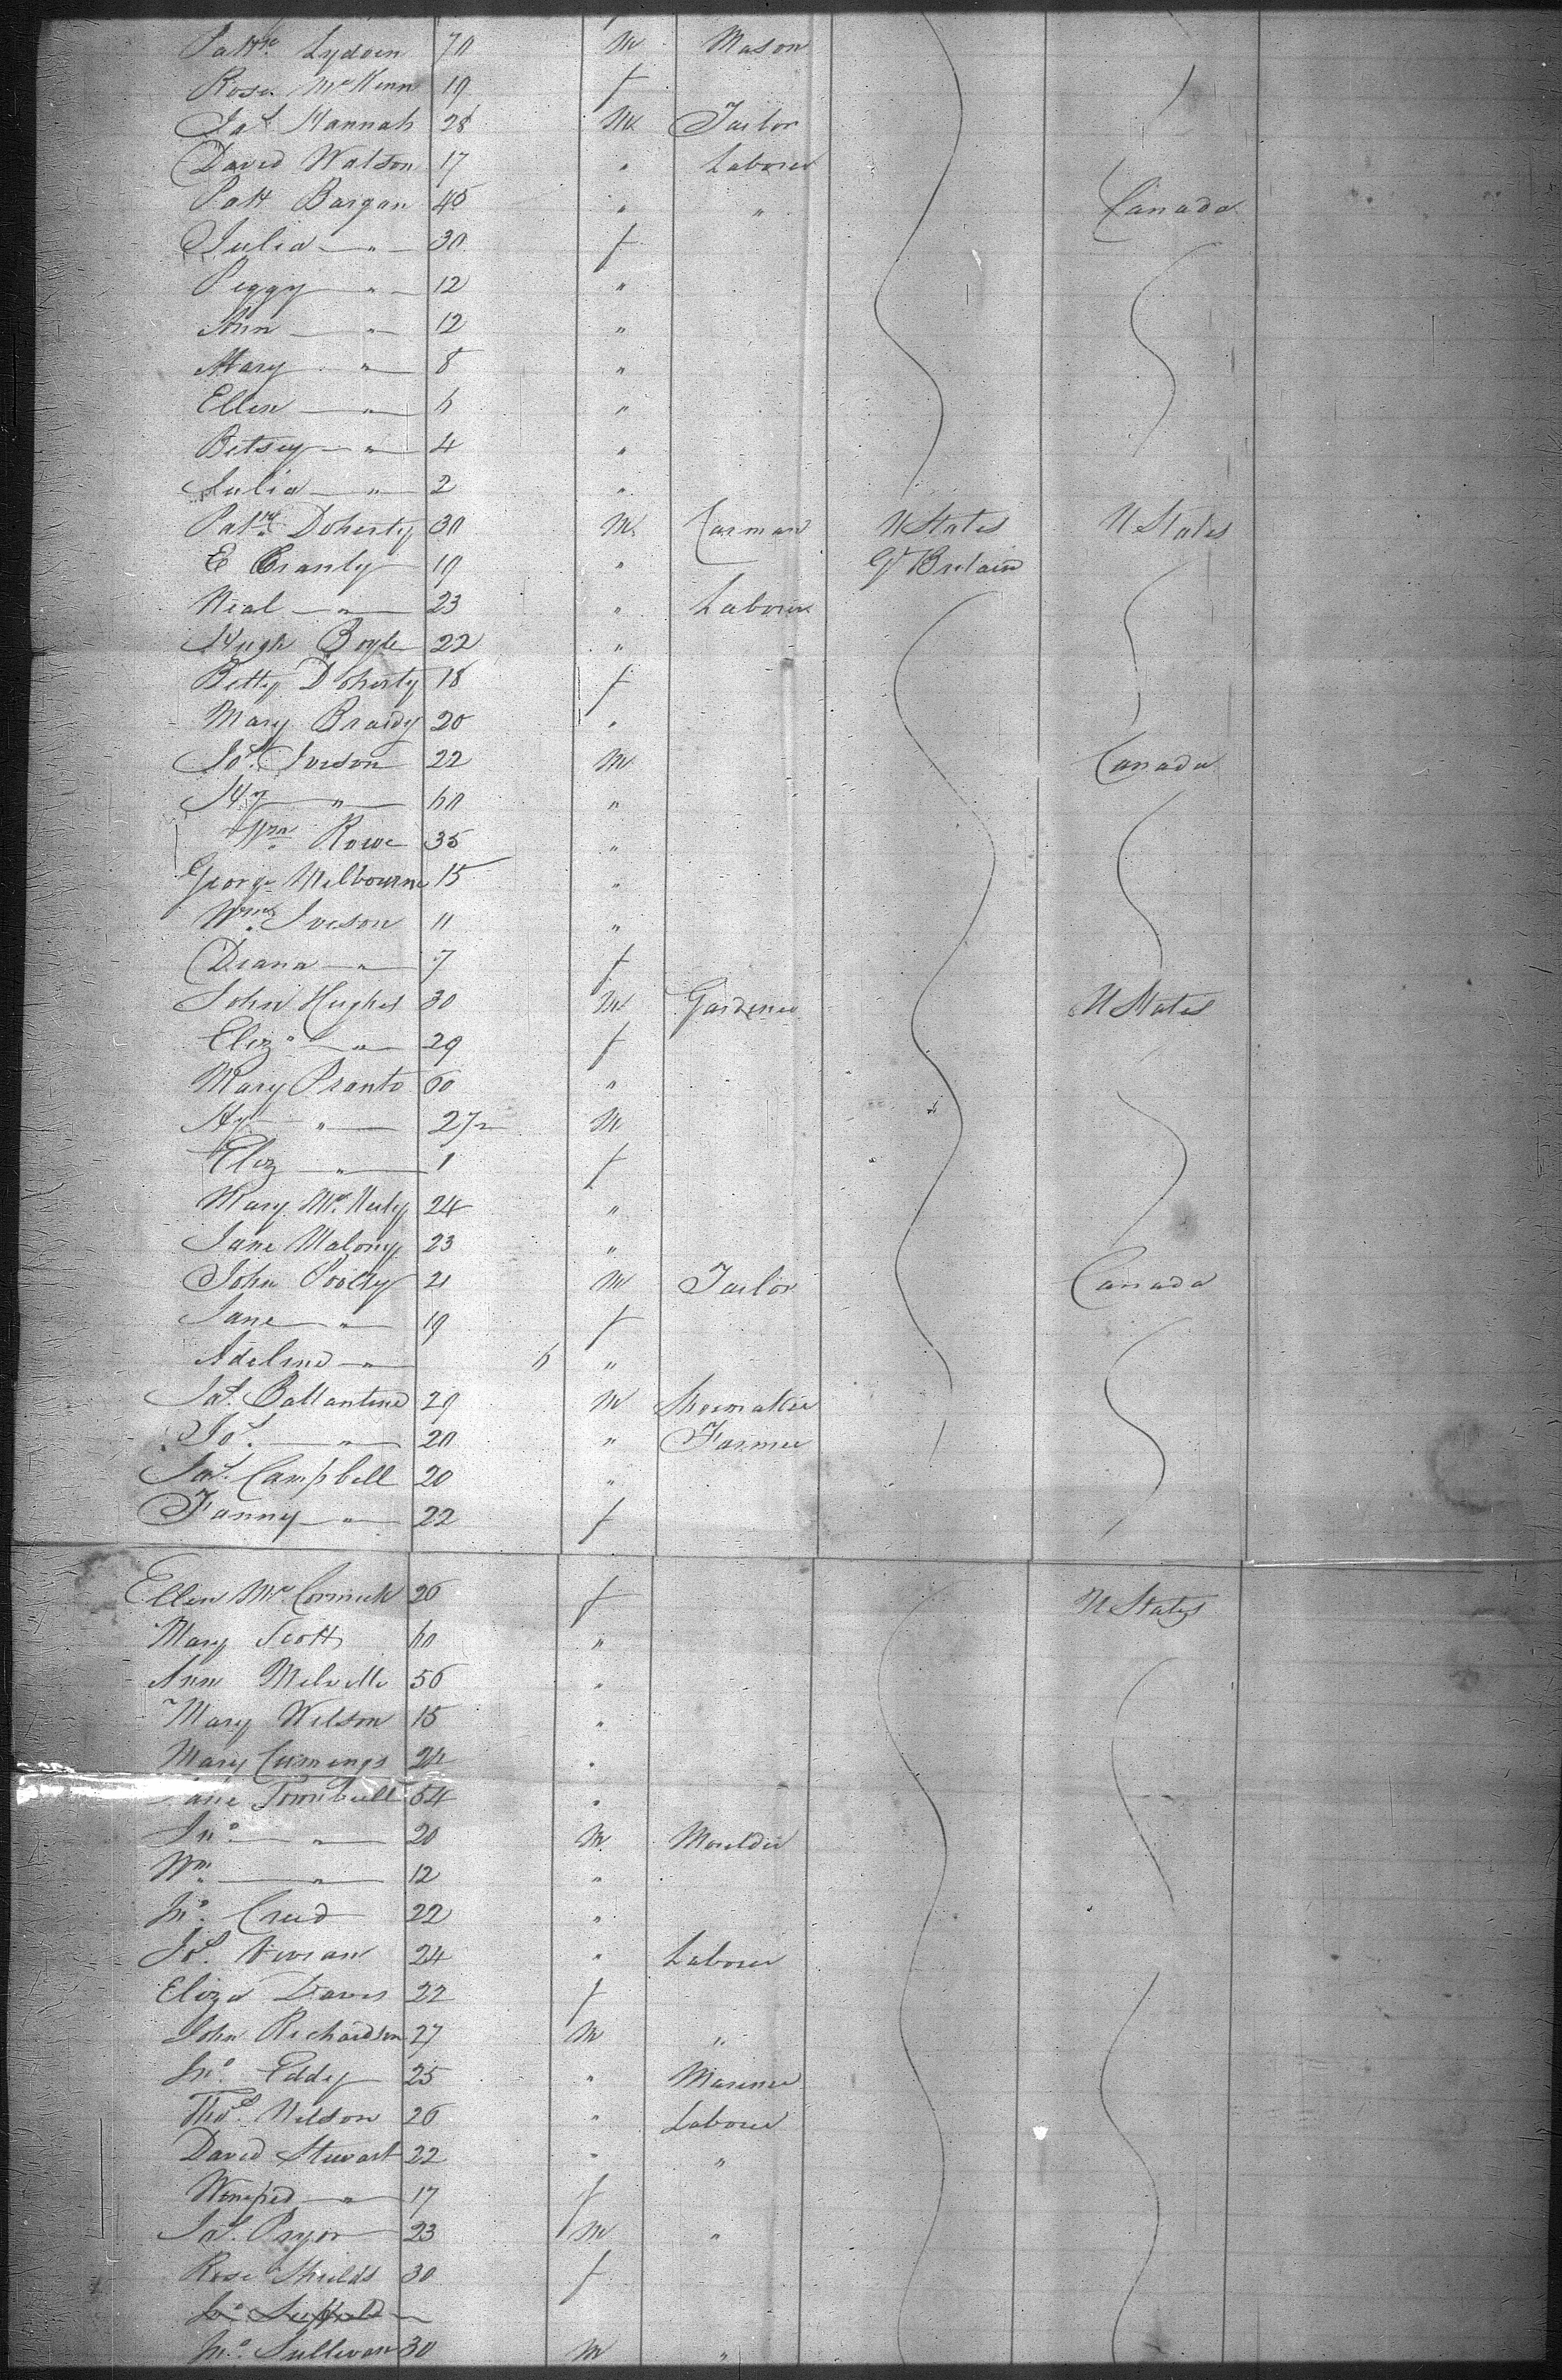 Patk. Lydoen 70 M Mason
Rose McKenn 19 f
Jas. Hannah 28 M Tailor
David Watson 17 " Laborer
Patt Bargan 45 " " Canada
Julia " 30 f
Peggy " 12 "
Ann " 12 "
Mary " 8 "
Ellen " 6 "
Betsey " 4 "
Julia " 2 "
Patrk. Doherty 30 M Carman U States U States
E Cranly 19 " Gt Britain
Neal " 23 " Laborer
Hugh Boyle 22 "
Betty Doherty 18 f
Mary Braidy 20 "
Jos. Iveson 22 M Canada
Hy " 60 "
Wm. Rowe 35 "
George Melbourne 15 "
Wm. Iveson 11 "
Diana " 7 f
John Hughes 30 M Gardener U States
Eliza " 29 f
Mary Pranto 60 "
Hy " 2 1/2 M
Eliz " 1 f
Mary 24 "
Jane Malony 23 "
John 21 M Tailor Canada
Jane " 19 f
Adeline " 6 "
Jas. Ballantine 29 M Shoemaker
Jos. " 20 " Farmer
Jas. Campbell 20 "
Fanny " 22 f
Ellen McCormick 26 f U States
Mary Scott 60 "
Ann Melville 56 "
Mary Wilson 15 "
Mary Cumings 24 "
Jane Turnbull 54 "
Jno. " 20 M Moulder
Wm. " 12 "
Jno. Creed 22 "
Jos. Vivian 24 " Laborer
Eliza Davis 22 f
John Richardson 27 M "
Jno. Eddy 25 " Mariner
Thos. Wilson 26 " Laborer
David Stewart 22 " "
Winefred " 17 f
Jas. Pryor 23 M "
Rose Shields 30 f
Jno. Sullivan 30 M "